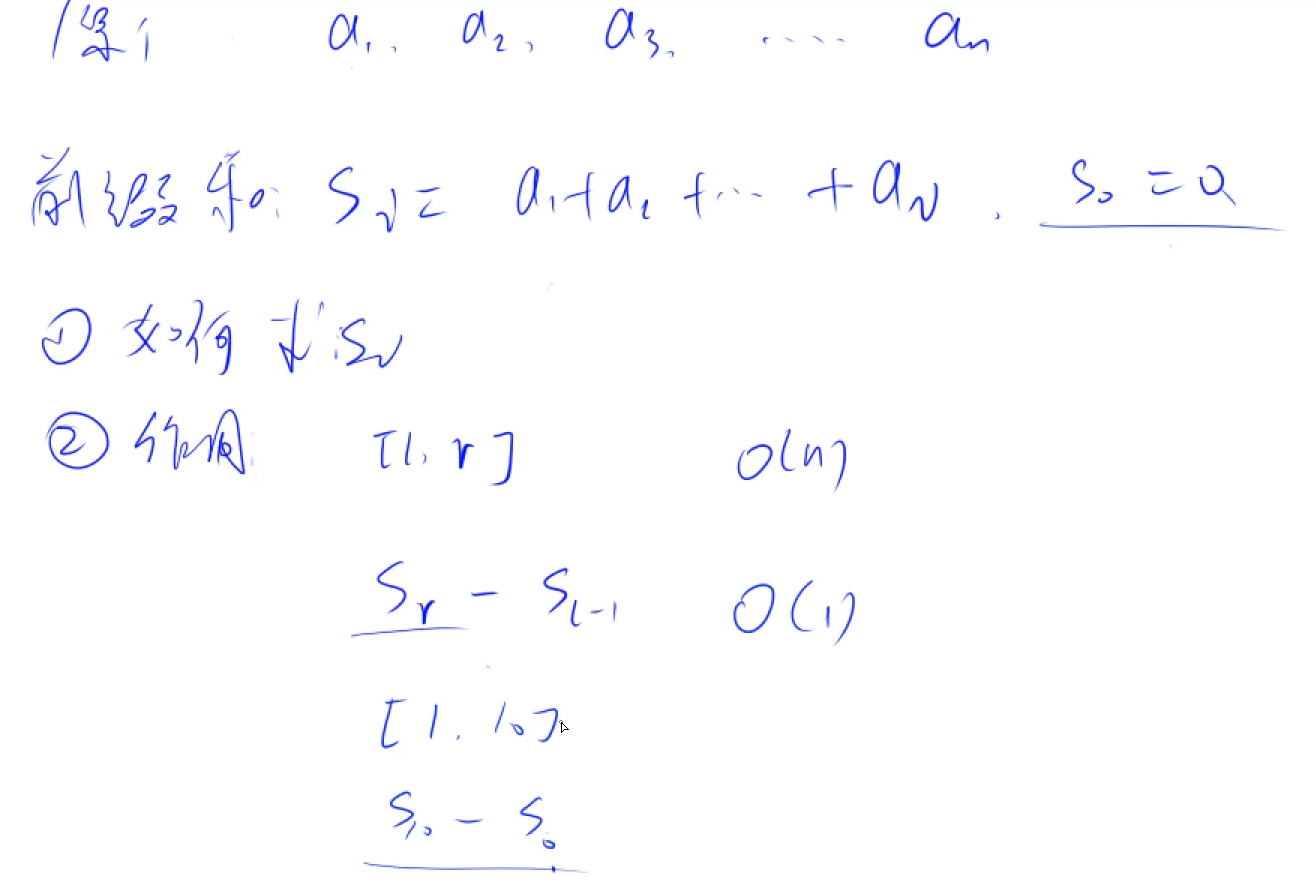 a₁, a₂, a₃, ..... aₙ
前缀和: Sᵢ = a₁+a₂+...+aᵢ. S₀=0
① 如何求Sᵢ
② 作用 [l, r] O(n)
Sᵣ - Sₗ₋₁ O(1)
[1, 10]
S₁₀ - S₀